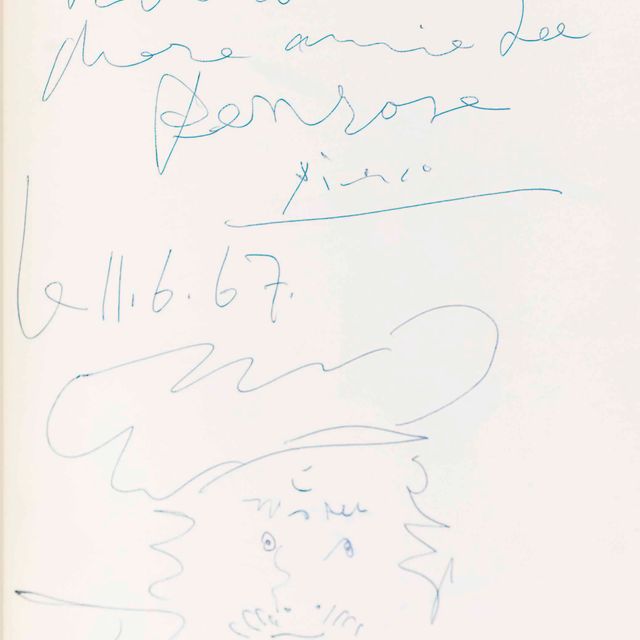 chere annie Lee
Penrose
Picasso
le 11.6.67.